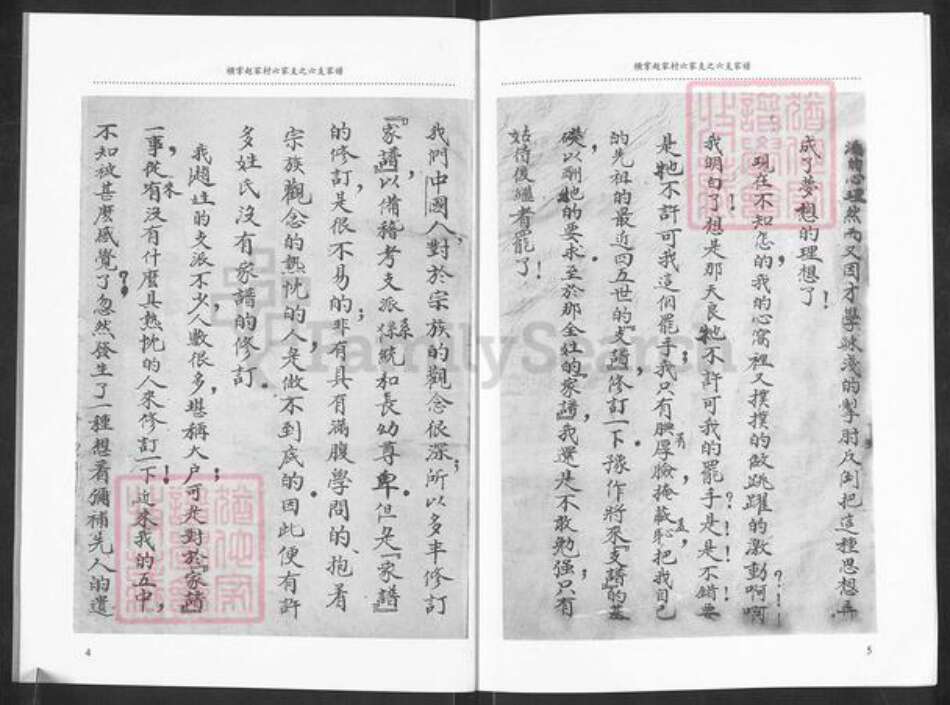 橫掌趙家村六家支之六支家譜
我們中國人，對於宗族的觀念很深；所以多半修訂
『家譜』，以備稽考支派系統和長幼尊卑。但是『家譜』
的修訂，是很不易的；非有具有滿腹學問的、抱着
宗族觀念的熱忱的人，是做不到底的。因此便有許
多姓氏沒有家譜的修訂。
我趙姓的支派不少，人數很多，堪稱大户；可是對於『家譜』
一事，從來沒有什麼具熱忱的人來修訂一下！近來我的五中，
不知被甚麼感覺了？忽然發生了一種想着彌補先人的遺
4
橫掌趙家村六家支之六支家譜
的心理。然而又因才學疎淺的掣肘，反倒把這種思想弄
成了夢想的理想了！
現在不知怎的，我的心窩裡又撲撲的做跳躍的激動啊啊
我明白了！想是那天良牠不許可我的罷手是是不錯要
是牠不許可我這個罷手；我只有腆着厚臉，掩蓋羞恥，把我自己
的先祖的最近四五世的『支譜』，修訂一下。豫作將來『支譜』的基
礎，以副牠的要求。至於那全姓的『家譜』，我還是不敢勉强；只有
姑待後繼者罷了！
5
FamilySearch